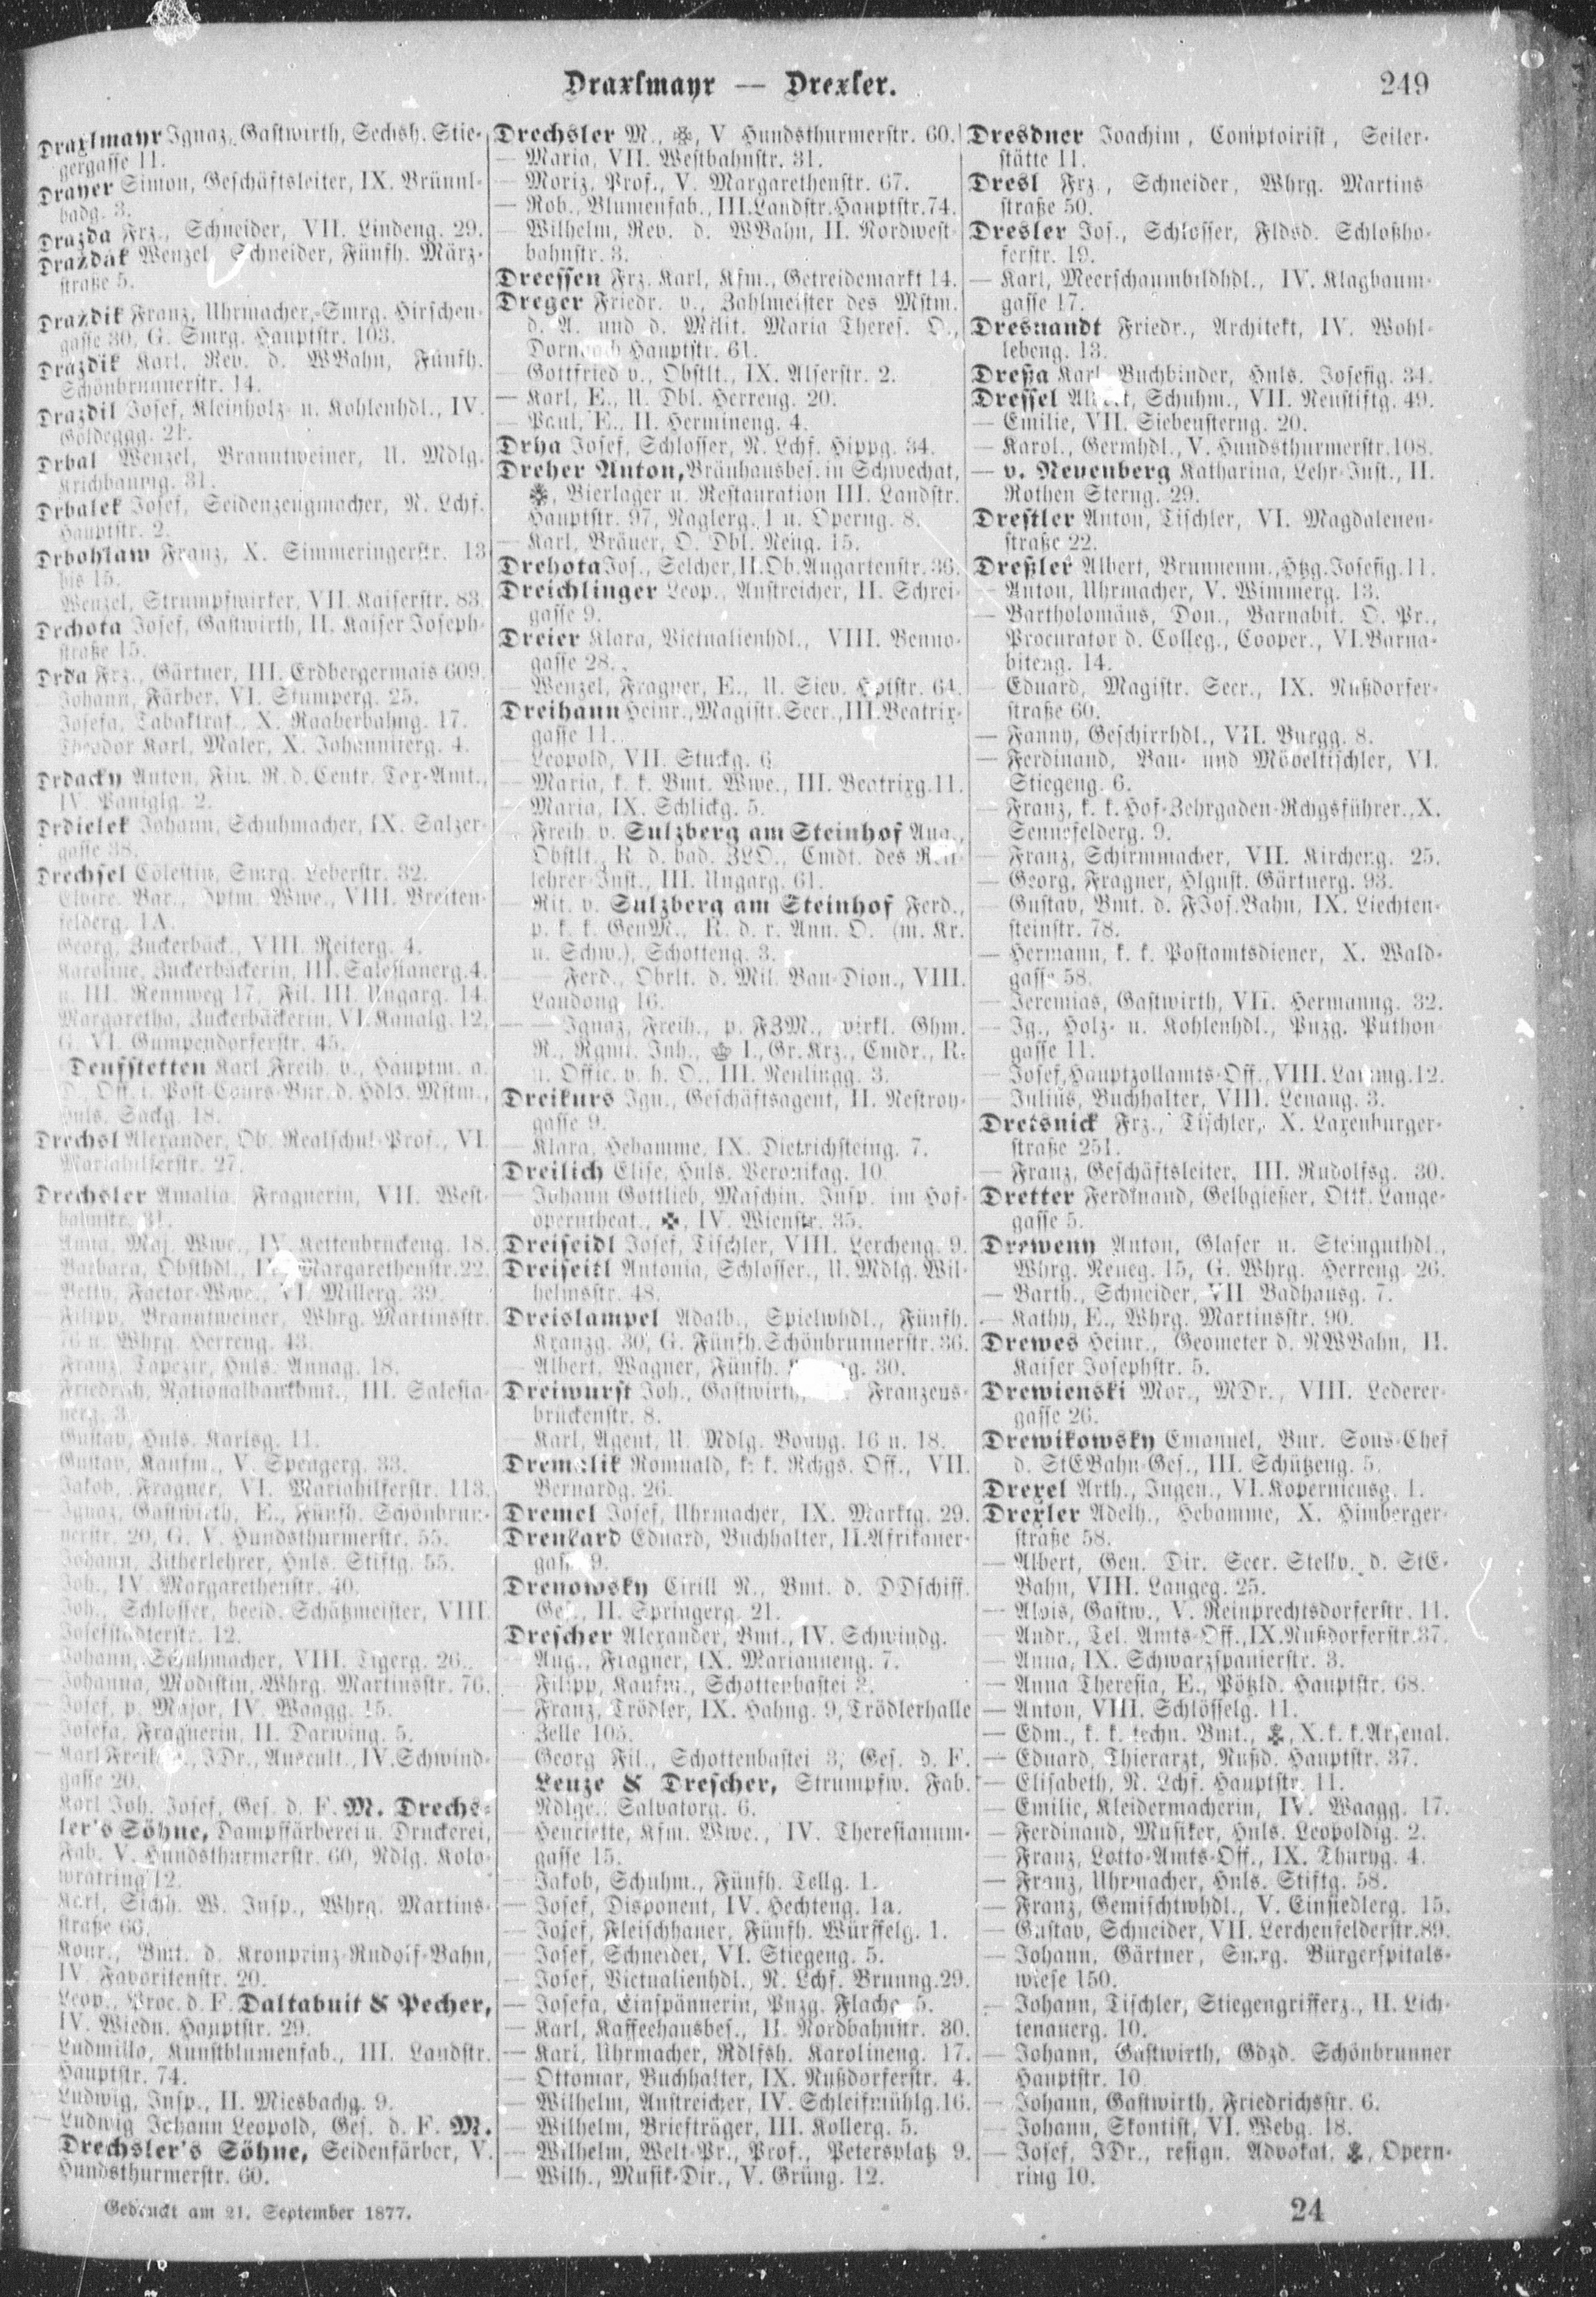 Draxlmayr — Drexler.
249
Draxlmayr Ignaz, Gastwirth, Sechsh. Stie-
gergasse 11.
Drayer Simon, Geschäftsleiter, IX. Brünnl-
badg. 3.
Drazda Frz., Schneider, VII. Lindeng. 29.
Drazdak Wenzel, Schneider, Fünfh. März-
straße 5.
Drazdik Franz, Uhrmacher, Smrg. Hirschen-
gasse 30, G. Smrg. Hauptstr. 103.
Drazdik Karl, Rev. d. WBahn, Fünfh.
Schönbrunnerstr. 14.
Drazdil Josef, Kleinholz- u. Kohlenhdl., IV.
Göldeggg. 21.
Drbal Wenzel, Branntweiner, U. Mdlg.
Krichbaumg. 31.
Drbalek Josef, Seidenzeugmacher, N. Lchf.
Hauptstr. 2.
Drbohlaw Franz, X. Simmeringerstr. 13
bis 15.
— Wenzel, Strumpfwirker, VII. Kaiserstr. 83.
Drchota Josef, Gastwirth, II. Kaiser Joseph-
straße 15.
Drda Frz., Gärtner, III. Erdbergermais 609.
— Johann, Färber, VI. Stumperg. 25.
— Josefa, Tabaktraf., X. Raaberbahng. 17.
— Theodor Karl, Maler, X. Johanniterg. 4.
Drdacky Anton, Fin. R. d. Centr. Tax-Amt.,
IV. Paniglg. 2.
Drdielek Johann, Schuhmacher, IX. Salzer-
gasse 38.
Drechsel Cölestin, Smrg. Leberstr. 32.
— Elvire, Bar., Hptm. Wwe., VIII. Breiten-
felderg. 1A.
— Georg, Zuckerbäck., VIII. Reiterg. 4.
— Karoline, Zuckerbäckerin, III. Salesianerg. 4.
u. III. Rennweg 17, Fil. III. Ungarg. 14.
— Margaretha, Zuckerbäckerin, VI. Kanalg. 12,
G. VI. Gumpendorferstr. 45.
— Deufstetten Karl Freih. v., Hauptm. a.
D., Off. i. Post-Cours-Bur. d. Hdls. Mstm.,
Huls. Sackg. 18.
Drechsl Alexander, Ob. Realschul-Prof., VI.
Mariahilferstr. 27.
Drechsler Amalia, Fragnerin, VII. West-
bahnstr. 31.
— Anna, Maj. Wwe., IV. Kettenbrückeng. 18.
— Barbara, Obsthdl., Margarethenstr. 22.
— Betty, Factor-Wwe., VI. Millerg. 39.
— Filipp, Branntweiner, Whrg. Martinsstr.
76 u. Whrg. Herreng. 43.
— Franz, Tapezir, Huls. Annag. 18.
— Friedrich, Nationalbankbmt., III. Salesia-
nerg. 3.
— Gustav, Huls. Karlsg. 11.
— Gustav, Kaufm., V. Spengerg. 33.
— Jakob, Fragner, VI. Mariahilferstr. 113.
— Ignaz, Gastwirth, E., Fünfh. Schönbrun-
nerstr. 20, G. V. Hundsthurmerstr. 55.
— Johann, Zitherlehrer, Huls. Stiftg. 55.
— Joh., IV. Margarethenstr. 40.
— Joh., Schlosser, beeid. Schätzmeister, VIII.
Josefstädterstr. 12.
— Johann, Schuhmacher, VIII. Tigerg. 26.
— Johanna, Modistin, Whrg. Martinsstr. 76.
— Josef, p. Major, IV. Waagg. 15.
— Josefa, Fragnerin, II. Darwing. 5.
— Karl Freih., JDr., Auscult., IV. Schwind-
gasse 20.
— Karl Joh. Josef, Ges. d. F. M. Drechs-
ler's Söhne, Dampffärberei u. Druckerei,
Fab. V. Hundsthurmerstr. 60, Ndlg. Kolo-
wratring 12.
— Karl, Sichh. W. Insp., Whrg. Martins-
straße 66.
— Konr., Bmt. d. Kronprinz-Rudolf-Bahn,
IV. Favoritenstr. 20.
— Leop., Proc. d. F. Daltabuit & Pecher,
IV. Wiedn. Hauptstr. 29.
— Ludmilla, Kunstblumenfab., III. Landstr.
Hauptstr. 74.
— Ludwig, Insp., II. Miesbachg. 9.
— Ludwig Johann Leopold, Ges. d. F. M.
Drechsler's Söhne, Seidenfärber, V.
Hundsthurmerstr. 60.
Gedruckt am 21. September 1877.
Drechsler M., V. Hundsthurmerstr. 60.
— Maria, VII. Westbahnstr. 31.
— Moriz, Prof., V. Margarethenstr. 67.
— Rob., Blumenfab., III. Landstr. Hauptstr. 74.
— Wilhelm, Rev. d. WBahn, II. Nordwest-
bahnstr. 3.
Dreessen Frz. Karl, Kfm., Getreidemarkt 14.
Dreger Friedr. v., Zahlmeister des Mstm.
d. A. und d. Milit. Maria Theres. O.,
Dornbach Hauptstr. 61.
— Gottfried v., Obstlt., IX. Alserstr. 2.
— Karl, E., U. Dbl. Herreng. 20.
— Paul, E., II. Hermineng. 4.
Drha Josef, Schlosser, N. Lchf. Hippg. 34.
Dreher Anton, Bräuhausbes. in Schwechat,
Bierlager u. Restauration III. Landstr.
Hauptstr. 97, Naglerg. 1 u. Operng. 8.
— Karl, Bräuer, O. Dbl. Neug. 15.
Drehota Jos., Selcher, II. Ob. Augartenstr. 36.
Dreichlinger Leop., Anstreicher, II. Schrei-
gasse 9.
Dreier Klara, Victualienhdl., VIII. Benno-
gasse 28.
— Wenzel, Fragner, E., U. Siev. Hptstr. 64.
Dreihann Heinr., Magistr. Secr., III. Beatrix-
gasse 11.
— Leopold, VII. Stuckg. 6
— Maria, k. k. Bmt. Wwe., III. Beatrixg. 11.
— Maria, IX. Schlickg. 5.
— Freih. v. Sulzberg am Steinhof Aug.,
Obstlt., R. d. bad. ZLO., Cmdt. des Reit-
lehrer-Inst., III. Ungarg. 61.
— Rit. v. Sulzberg am Steinhof Ferd.,
p. k. k. GenM., R. d. r. Ann. O. (m. Kr.
u. Schw.), Schotteng. 3.
— — Ferd., Obrlt. d. Mil. Bau-Dion., VIII.
Laudong. 16.
— — Ignaz, Freih., p. FZM., wirkl. Ghm.
R., Rgmt. Inh., I., Gr. Krz., Cmdr., R.
u. Offic. v. h. O., III. Reulingg. 3.
Dreikurs Ign., Geschäftsagent, II. Nestroy-
gasse 9.
— Klara, Hebamme, IX. Dietrichsteing. 7.
Dreilich Elise, Huls. Veronikag. 10.
— Johann Gottlieb, Maschin. Insp. im Hof-
operntheat., IV. Wienstr. 35.
Dreiseidl Josef, Tischler, VIII. Lercheng. 9.
Dreiseitl Antonia, Schlosser., U. Mdlg. Wil-
helmsstr. 48.
Dreislampel Adalb., Spielwhdl., Fünfh.
Kranzg. 30, G. Fünfh. Schönbrunnerstr. 36.
— Albert, Wagner, Fünfh. 30.
Dreiwurst Joh., Gastwirth, Franzens-
brückenstr. 8.
— Karl, Agent, U. Mdlg. Bonyg. 16 u. 18.
Dremalik Romuald, k. k. Rchgs. Off., VII.
Bernardg. 26.
Dremel Josef, Uhrmacher, IX. Marktg. 29.
Drenkard Eduard, Buchhalter, II. Afrikaner-
gasse 9.
Drenowsky Cirill N., Bmt. d. DDschiff.
Ges., II. Springerg. 21.
Drescher Alexander, Bmt., IV. Schwindg.
— Aug., Fragner, IX. Marianneng. 7.
— Filipp, Kaufm., Schottenbastei 3.
— Franz, Trödler, IX. Hahng. 9, Trödlerhalle
Zelle 105.
— Georg Fil., Schottenbastei 3, Ges. d. F.
Leuze & Drescher, Strumpfw. Fab.
Ndlge. Salvatorg. 6.
— Henriette, Kfm. Wwe., IV. Theresianum-
gasse 15.
— Jakob, Schuhm., Fünfh. Tellg. 1.
— Josef, Disponent, IV. Hechteng. 1a.
— Josef, Fleischhauer, Fünfh. Würffelg. 1.
— Josef, Schneider, VI. Stiegeng. 5.
— Josef, Victualienhdl., N. Lchf. Brunng. 29.
— Josefa, Einspännerin, Pnzg. Flachg. 5.
— Karl, Kaffeehausbes., II. Nordbahnstr. 30.
— Karl, Uhrmacher, Rdlfsh. Karolineng. 17.
— Ottomar, Buchhalter, IX. Nußdorferstr. 4.
— Wilhelm, Anstreicher, IV. Schleifmühlg. 16.
— Wilhelm, Briefträger, III. Kollerg. 5.
— Wilhelm, Welt-Pr., Prof., Petersplatz 9.
— Wilh., Musik-Dir., V. Grüng. 12.
Dresdner Joachim, Comptoirist, Seiler-
stätte 11.
Dresl Frz., Schneider, Whrg. Martins-
straße 50.
Dresler Jos., Schlosser, Fldsd. Schloßho-
ferstr. 19.
— Karl, Meerschaumbildhdl., IV. Klagbaum-
gasse 17.
Dresnandt Friedr., Architekt, IV. Wohl-
lebeng. 13.
Dreßa Karl, Buchbinder, Huls. Josefig. 34.
Dressel Albert, Schuhm., VII. Neustiftg. 49.
— Emilie, VII. Siebensterng. 20.
— Karol., Germhdl., V. Hundsthurmerstr. 108.
— v. Neuenberg Katharina, Lehr-Inst., II.
Rothen Sterng. 29.
Drestler Anton, Tischler, VI. Magdalenen-
straße 22.
Dreßler Albert, Brunnenm., Htzg. Josefig. 11.
— Anton, Uhrmacher, V. Wimmerg. 13.
— Bartholomäus, Don., Barnabit. O. Pr.,
Procurator d. Colleg., Cooper., VI. Barna-
biteng. 14.
— Eduard, Magistr. Secr., IX. Nußdorfer-
straße 60.
— Fanny, Geschirrhdl., VII. Burgg. 8.
— Ferdinand, Bau- und Möbeltischler, VI.
Stiegeng. 6.
— Franz, k. k. Hof-Zehrgaden-Rchgsführer., X.
Sennefelderg. 9.
— Franz, Schirmmacher, VII. Kircheng. 25.
— Georg, Fragner, Hlgnst. Gärtnerg. 93.
— Gustav, Bmt. d. FJos. Bahn, IX. Liechten-
steinstr. 78.
— Hermann, k. k. Postamtsdiener, X. Wald-
gasse 58.
— Jeremias, Gastwirth, VII. Hermanng. 32.
— Ig., Holz- u. Kohlenhdl., Pnzg. Puthon-
gasse 11.
— Josef, Hauptzollamts-Off., VIII. 12.
— Julius, Buchhalter, VIII. Lenaug. 3.
Dretsnick Frz., Tischler, X. Laxenburger-
straße 251.
— Franz, Geschäftsleiter, III. Rudolfsg. 30.
Dretter Ferdinand, Gelbgießer, Ottk. Lange-
gasse 5.
Dreweny Anton, Glaser u. Steinguthdl.,
Whrg. Neueg. 15, G. Whrg. Herreng. 26.
— Barth., Schneider, VII. Badhausg. 7.
— Kathy, E., Whrg. Martinsstr. 90.
Drewes Heinr., Geometer d. NWBahn, II.
Kaiser Josephstr. 5.
Drewienski Mor., MDr., VIII. Lederer-
gasse 26.
Drewikowsky Emanuel, Bur. Sous-Chef
d. StEBahn-Ges., III. Schützeng. 5.
Drexel Arth., Ingen., VI. Kopernicusg. 1.
Drexler Adelh., Hebamme, X. Himberger-
straße 58.
— Albert, Gen. Dir. Secr. Stellv. d. StE-
Bahn, VIII. Langeg. 25.
— Alois, Gastw., V. Reinprechtsdorferstr. 11.
— Andr., Tel. Amts-Off., IX. Nußdorferstr. 37.
— Anna, IX. Schwarzspanierstr. 3.
— Anna Theresia, E., Pötzld. Hauptstr. 68.
— Anton, VIII. Schlösselg. 11.
— Edm., k. k. techn. Bmt., X. k. k. Arsenal.
— Eduard, Thierarzt, Nußd. Hauptstr. 37.
— Elisabeth, N. Lchf. Hauptstr. 11.
— Emilie, Kleidermacherin, IV. Waagg. 17.
— Ferdinand, Musiker, Huls. Leopoldig. 2.
— Franz, Lotto-Amts-Off., IX. Thuryg. 4.
— Franz, Uhrmacher, Huls. Stiftg. 58.
— Franz, Gemischtwhdl., V. Einsiedlerg. 15.
— Gustav, Schneider, VII. Lerchenfelderstr. 89.
— Johann, Gärtner, Smrg. Bürgerspitals-
wiese 150.
— Johann, Tischler, Stiegengrifferz., II. Lich-
tenauerg. 10.
— Johann, Gastwirth, Gdzd. Schönbrunner
Hauptstr. 10.
— Johann, Gastwirth, Friedrichsstr. 6.
— Johann, Skontist, VI. Webg. 18.
— Josef, JDr., resign. Advokat, Opern-
ring 10.
24